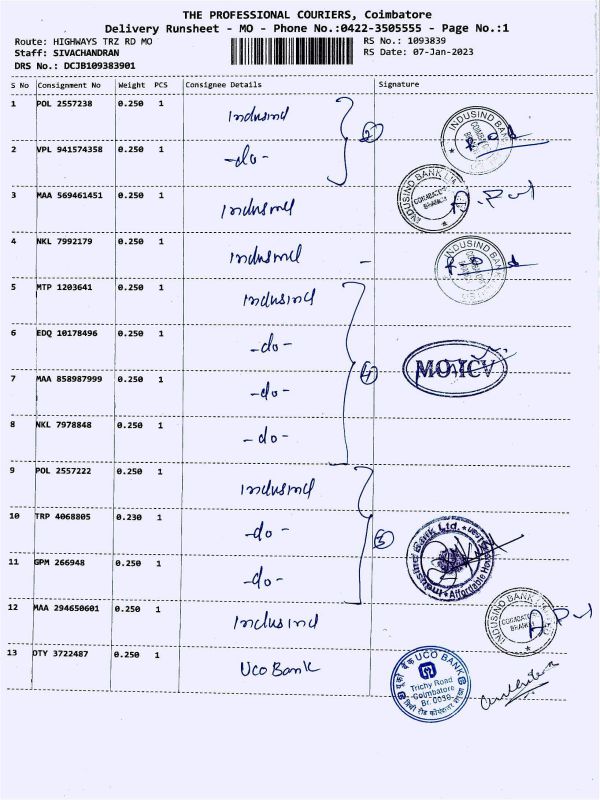 THE PROFESSIONAL COURIERS, Coimbatore
Delivery Runsheet - MO - Phone No.:0422-3505555 - Page No.:1
Route: HIGHWAYS TRZ RD MO
RS No.: 1093839
Staff: SIVACHANDRAN
RS Date: 07-Jan-2023
DRS No.: DCJB109383901
S No Consignment No Weight PCS Consignee Details Signature
1 POL 2557238 0.250 1 Indusind
2
INDUSIND BANK
2 VPL 941574358 0.250 1 -do-
3 MAA 569461451 0.250 1 Indusind
INDUSIND BANK LTD
COIMBATORE
BRANCH
4 NKL 7992179 0.250 1 Indusind -
INDUSIND BANK
5 MTP 1203641 0.250 1 Indusind
6 EDQ 10178496 0.250 1 -do-
4
MO ICV
7 MAA 858987999 0.250 1 -do-
8 NKL 7978848 0.250 1 -do-
9 POL 2557222 0.250 1 Indusind
10 TRP 4068805 0.230 1 -do-
3
IndusInd Bank Ltd.
Affordable
11 GPM 266948 0.250 1 -do-
12 MAA 294650601 0.250 1 Indusind
INDUSIND BANK
COIMBATORE
BRANCH
13 OTY 3722487 0.250 1 UCO Bank
यूको बैंक UCO BANK
Trichy Road
Coimbatore
Br. 0038